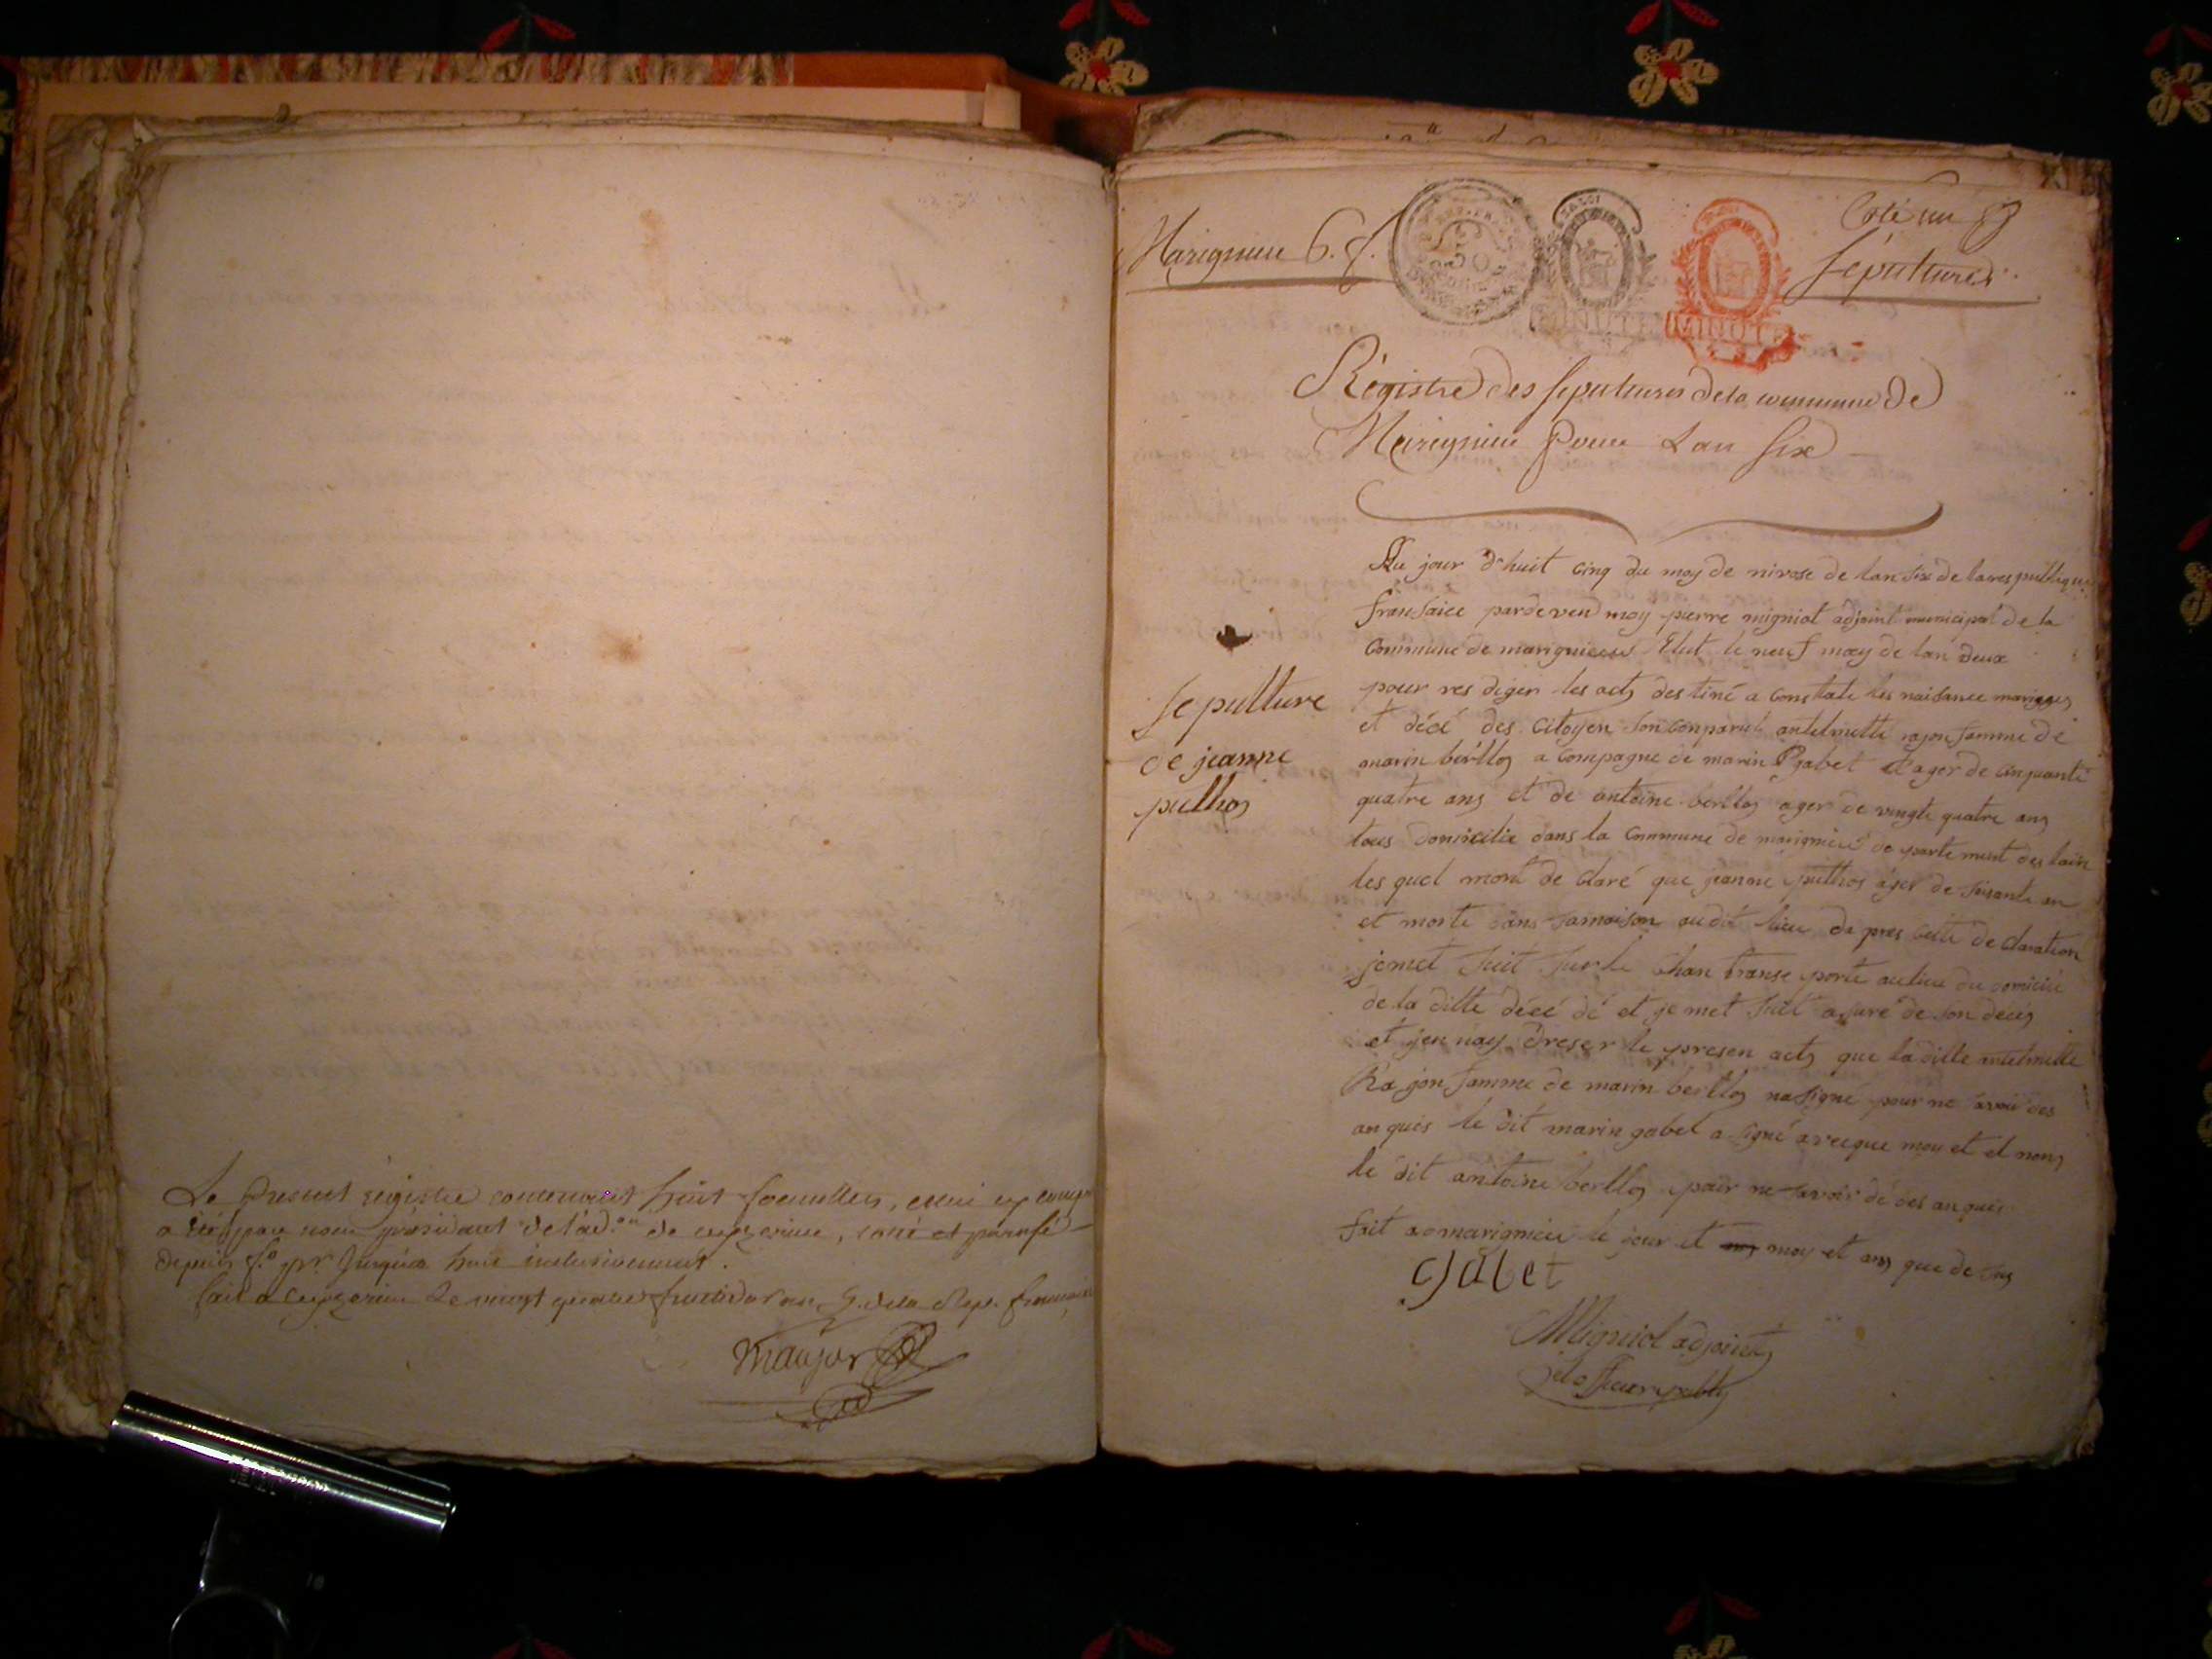 Le Present régistre contenant huit feuillets, celui cy compris
a été par nous président de l'ad.on de ceyzerieu, coté et paraphé
depuis f.o pr. Jusqu'a huit inclusivement.
fait a Ceyzerieu Le vingt quatre fructidor an 5. de la Rep. francaise
maujor
Marignieu 6. f.
50
MINUTE
MINUTE
Coté un
Sépultures
Régistre des sepultures de la commune de
Marignieu pour L'an six
Sepulture
de jeanne
pulhos
Au jour d'huit cinq du moy de nivose de lan six de la respublique
fransaice pardeven moy pierre migniot adjoint municipal de la
Commune de marignieu Elut le neuf may de lan deux
pour res diger les acts destiné a Constate les naisance mariages
et décé des Citoyen Son Conparut antelmette rajon famme de
marin berllos a Compagne de marin gabet ager de cinquante
quatre ans et de antoine berllos ager de vingte quatre ans
tous domicilie dans la Commune de marignieu de partement des lain
les quel mont de claré que jeanne pulhos ager de soisante an
et morte dans samaison audit lieu da pres cette declaration
jemet suit sur le chan transe porte au lieu du domicile
de la ditte décé dé et je met suit asuré de son decés
et jen nay dreser le presen acts que la ditte antelmette
Rajon famme de marin berllos na signé pour ne avoir des
an quis le dit marin gabet a signé avecque moy et et nons
le dit antoine berllos pour ne savoir dé des an quis
fait a marignieu le jour et moy et ans que de sus
gabet
Migniot adjoint
et officier public